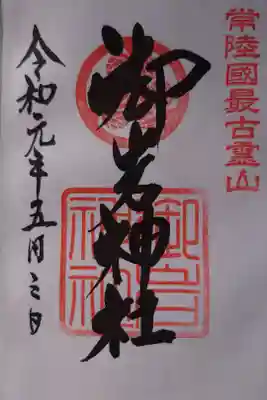 常陸國最古霊山
御岩神社
令和元年五月三日
御岩神社